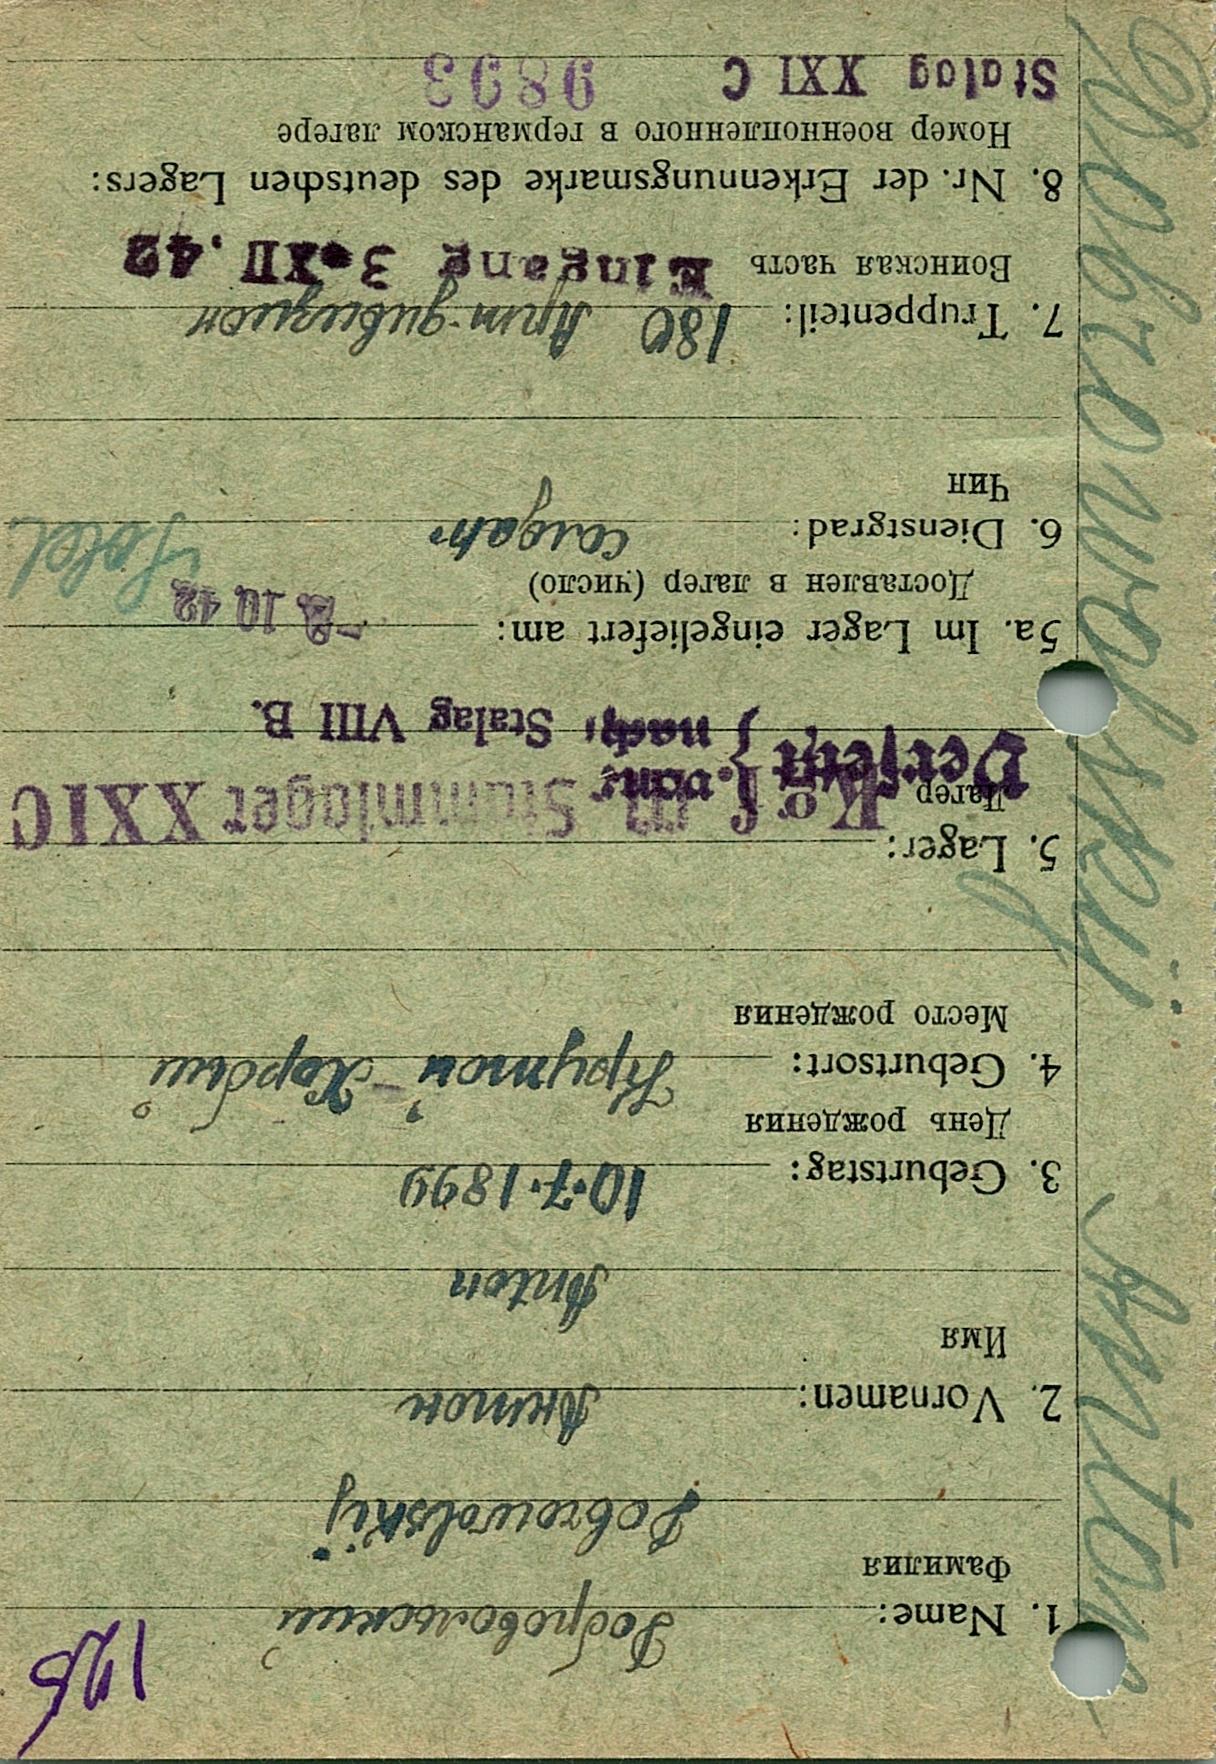 125
1. Name: Добровольский
Фамилия
Dobrowolskij
2. Vornamen: Антон
Имя
Anton
3. Geburtstag: 10.7.1899
День рождения
4. Geburtsort: Крутой
Место рождения
5. Lager: m. Stammlager XXI C
Лагер
Versetzt } von: Kgf.
nach: Stalag VIII B.
5a. Im Lager eingeliefert am: -2. 10. 42
Доставлен в лагер (число)
6. Dienstgrad: солдат Sold
Чин
7. Truppenteil: 180 Арт-дивизион
Воинская часть Eingang 3. XII. 42
8. Nr. der Erkennungsmarke des deutschen Lagers:
Номер военнопленного в германском лагере
Stalag XXI C 9893
Dobrowolskij Anton